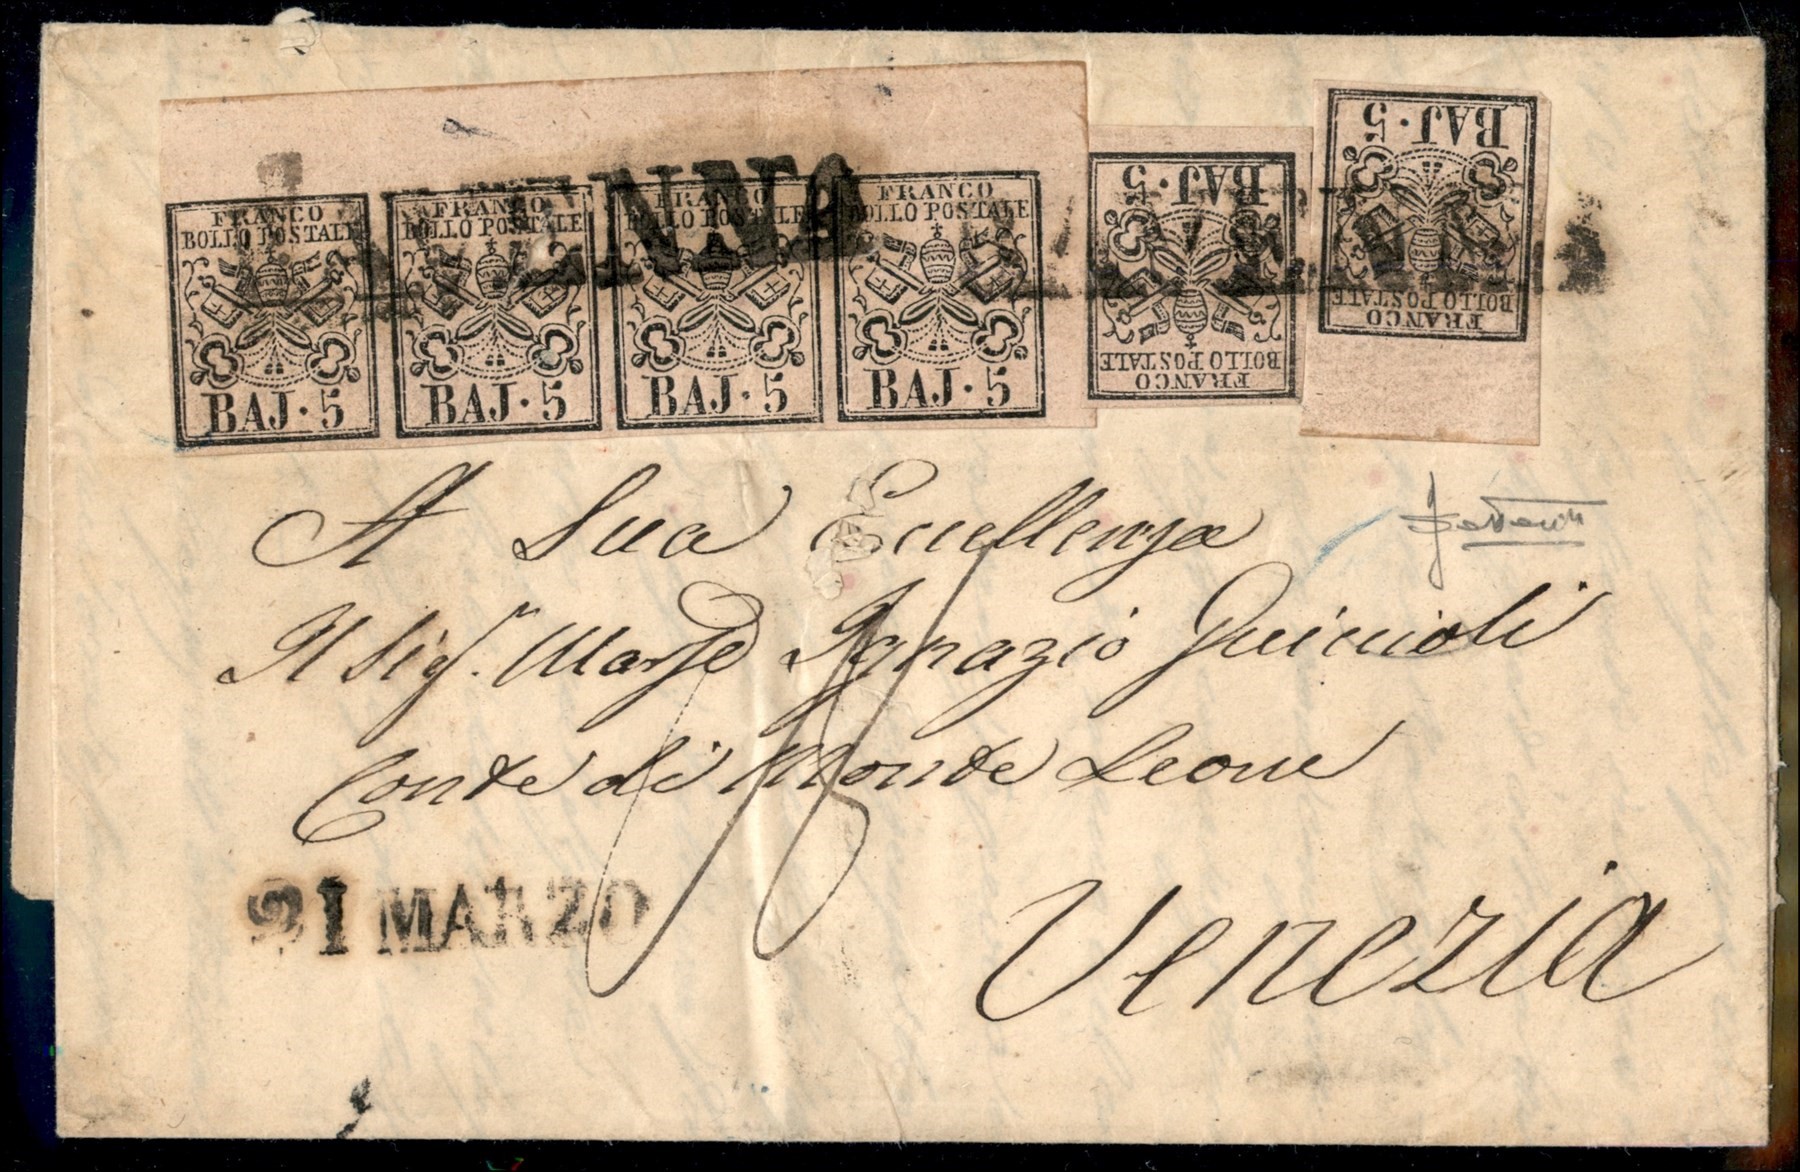 FRANCO
BOLLO POSTALE
BAJ · 5
FRANCO
BOLLO POSTALE
BAJ · 5
FRANCO
BOLLO POSTALE
BAJ · 5
FRANCO
BOLLO POSTALE
BAJ · 5
BAJ · 5
BOLLO POSTALE
FRANCO
BAJ · 5
BOLLO POSTALE
FRANCO
A Sua Eccellenza
Il Sig.r March Ignazio Guiccioli
Conte di Monte Leone
Venezia
21 MARZO